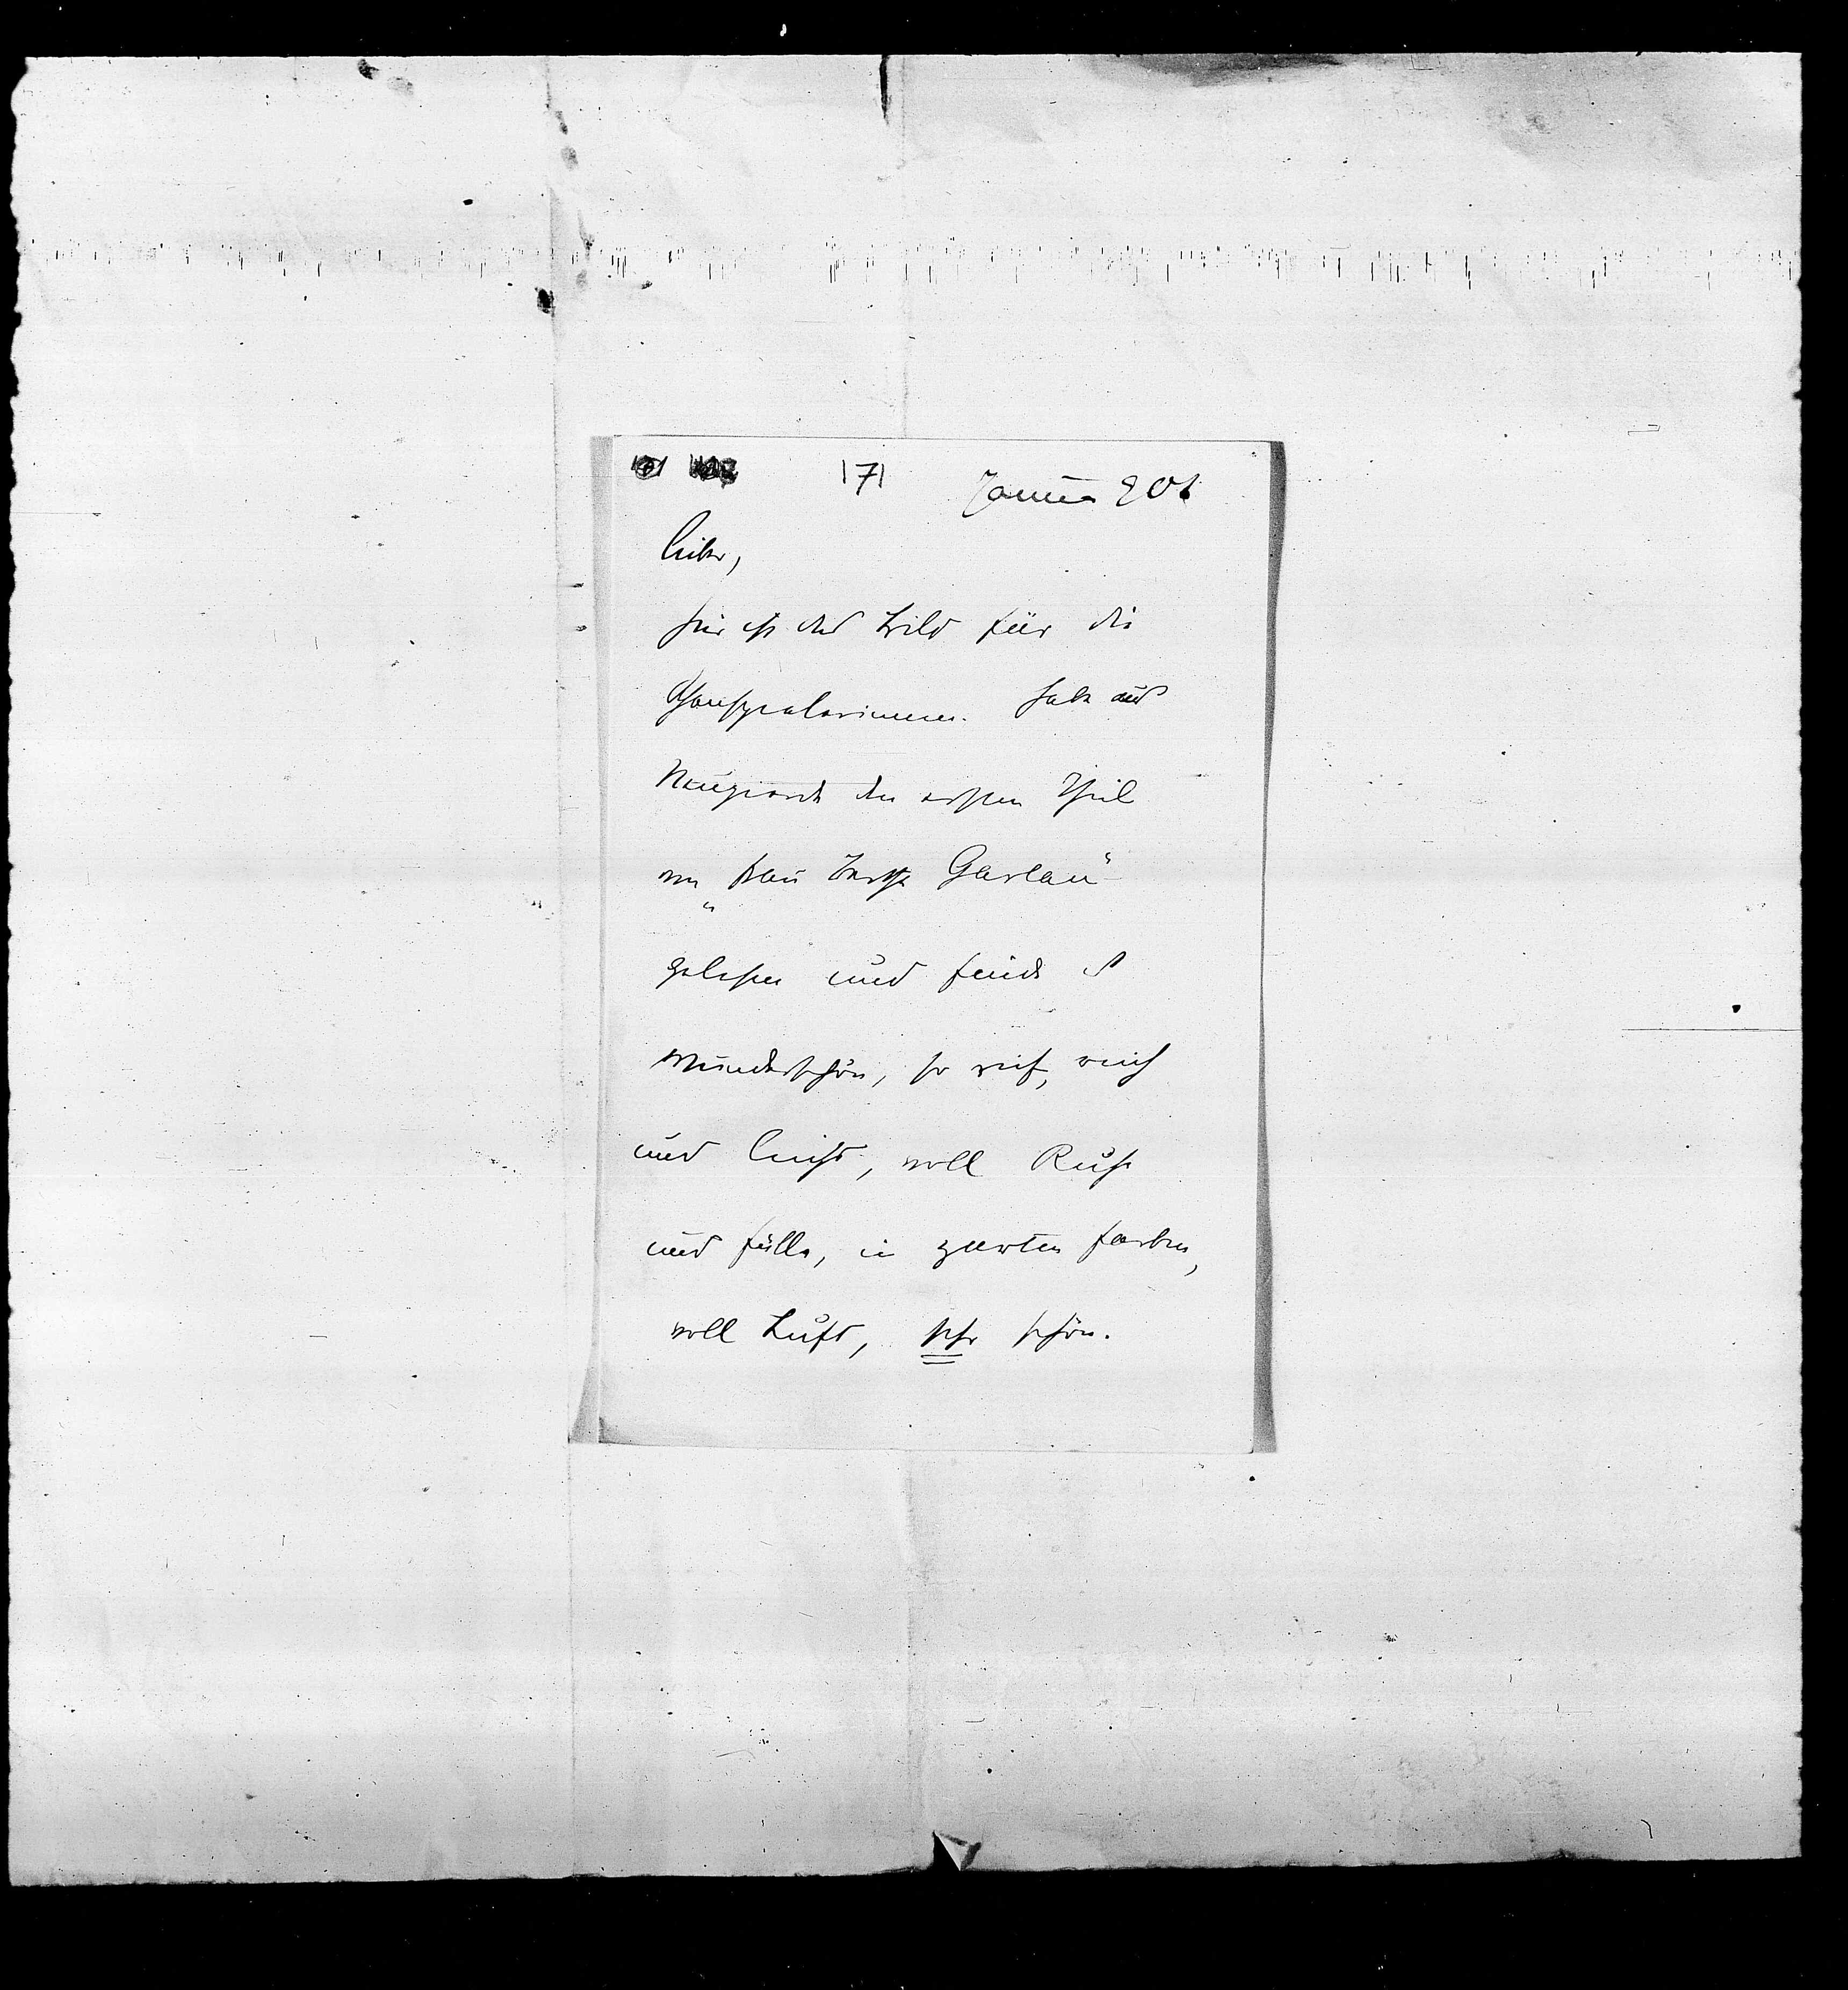 171 Januar 901
lieber,
hier ist das Bild für die
Schauspielerinnen. Habe aus
Neugierde den ersten Theil
von „Frau Bertha Garlan“
gelesen und finde es
wunderschön, so reif, reich
und leicht, voll Ruhe
und Fülle, in zarten Farben,
voll Luft, sehr schön.